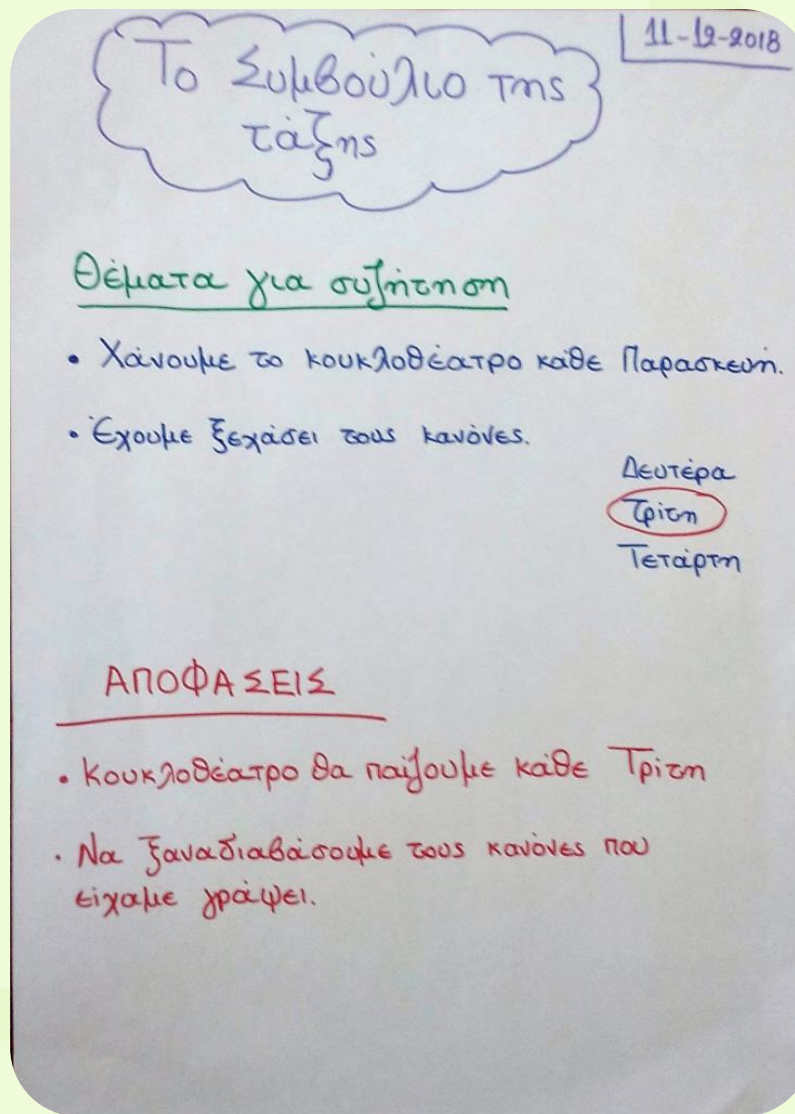 11-12-2018
Το Συμβούλιο της
τάξης
Θέματα για συζήτηση
• Χάνουμε το κουκλοθέατρο κάθε Παρασκευή.
• Έχουμε ξεχάσει τους κανόνες.
Δευτέρα
Τρίτη
Τετάρτη
ΑΠΟΦΑΣΕΙΣ
• Κουκλοθέατρο θα παίζουμε κάθε Τρίτη
• Να ξαναδιαβάσουμε τους κανόνες που
είχαμε γράψει.